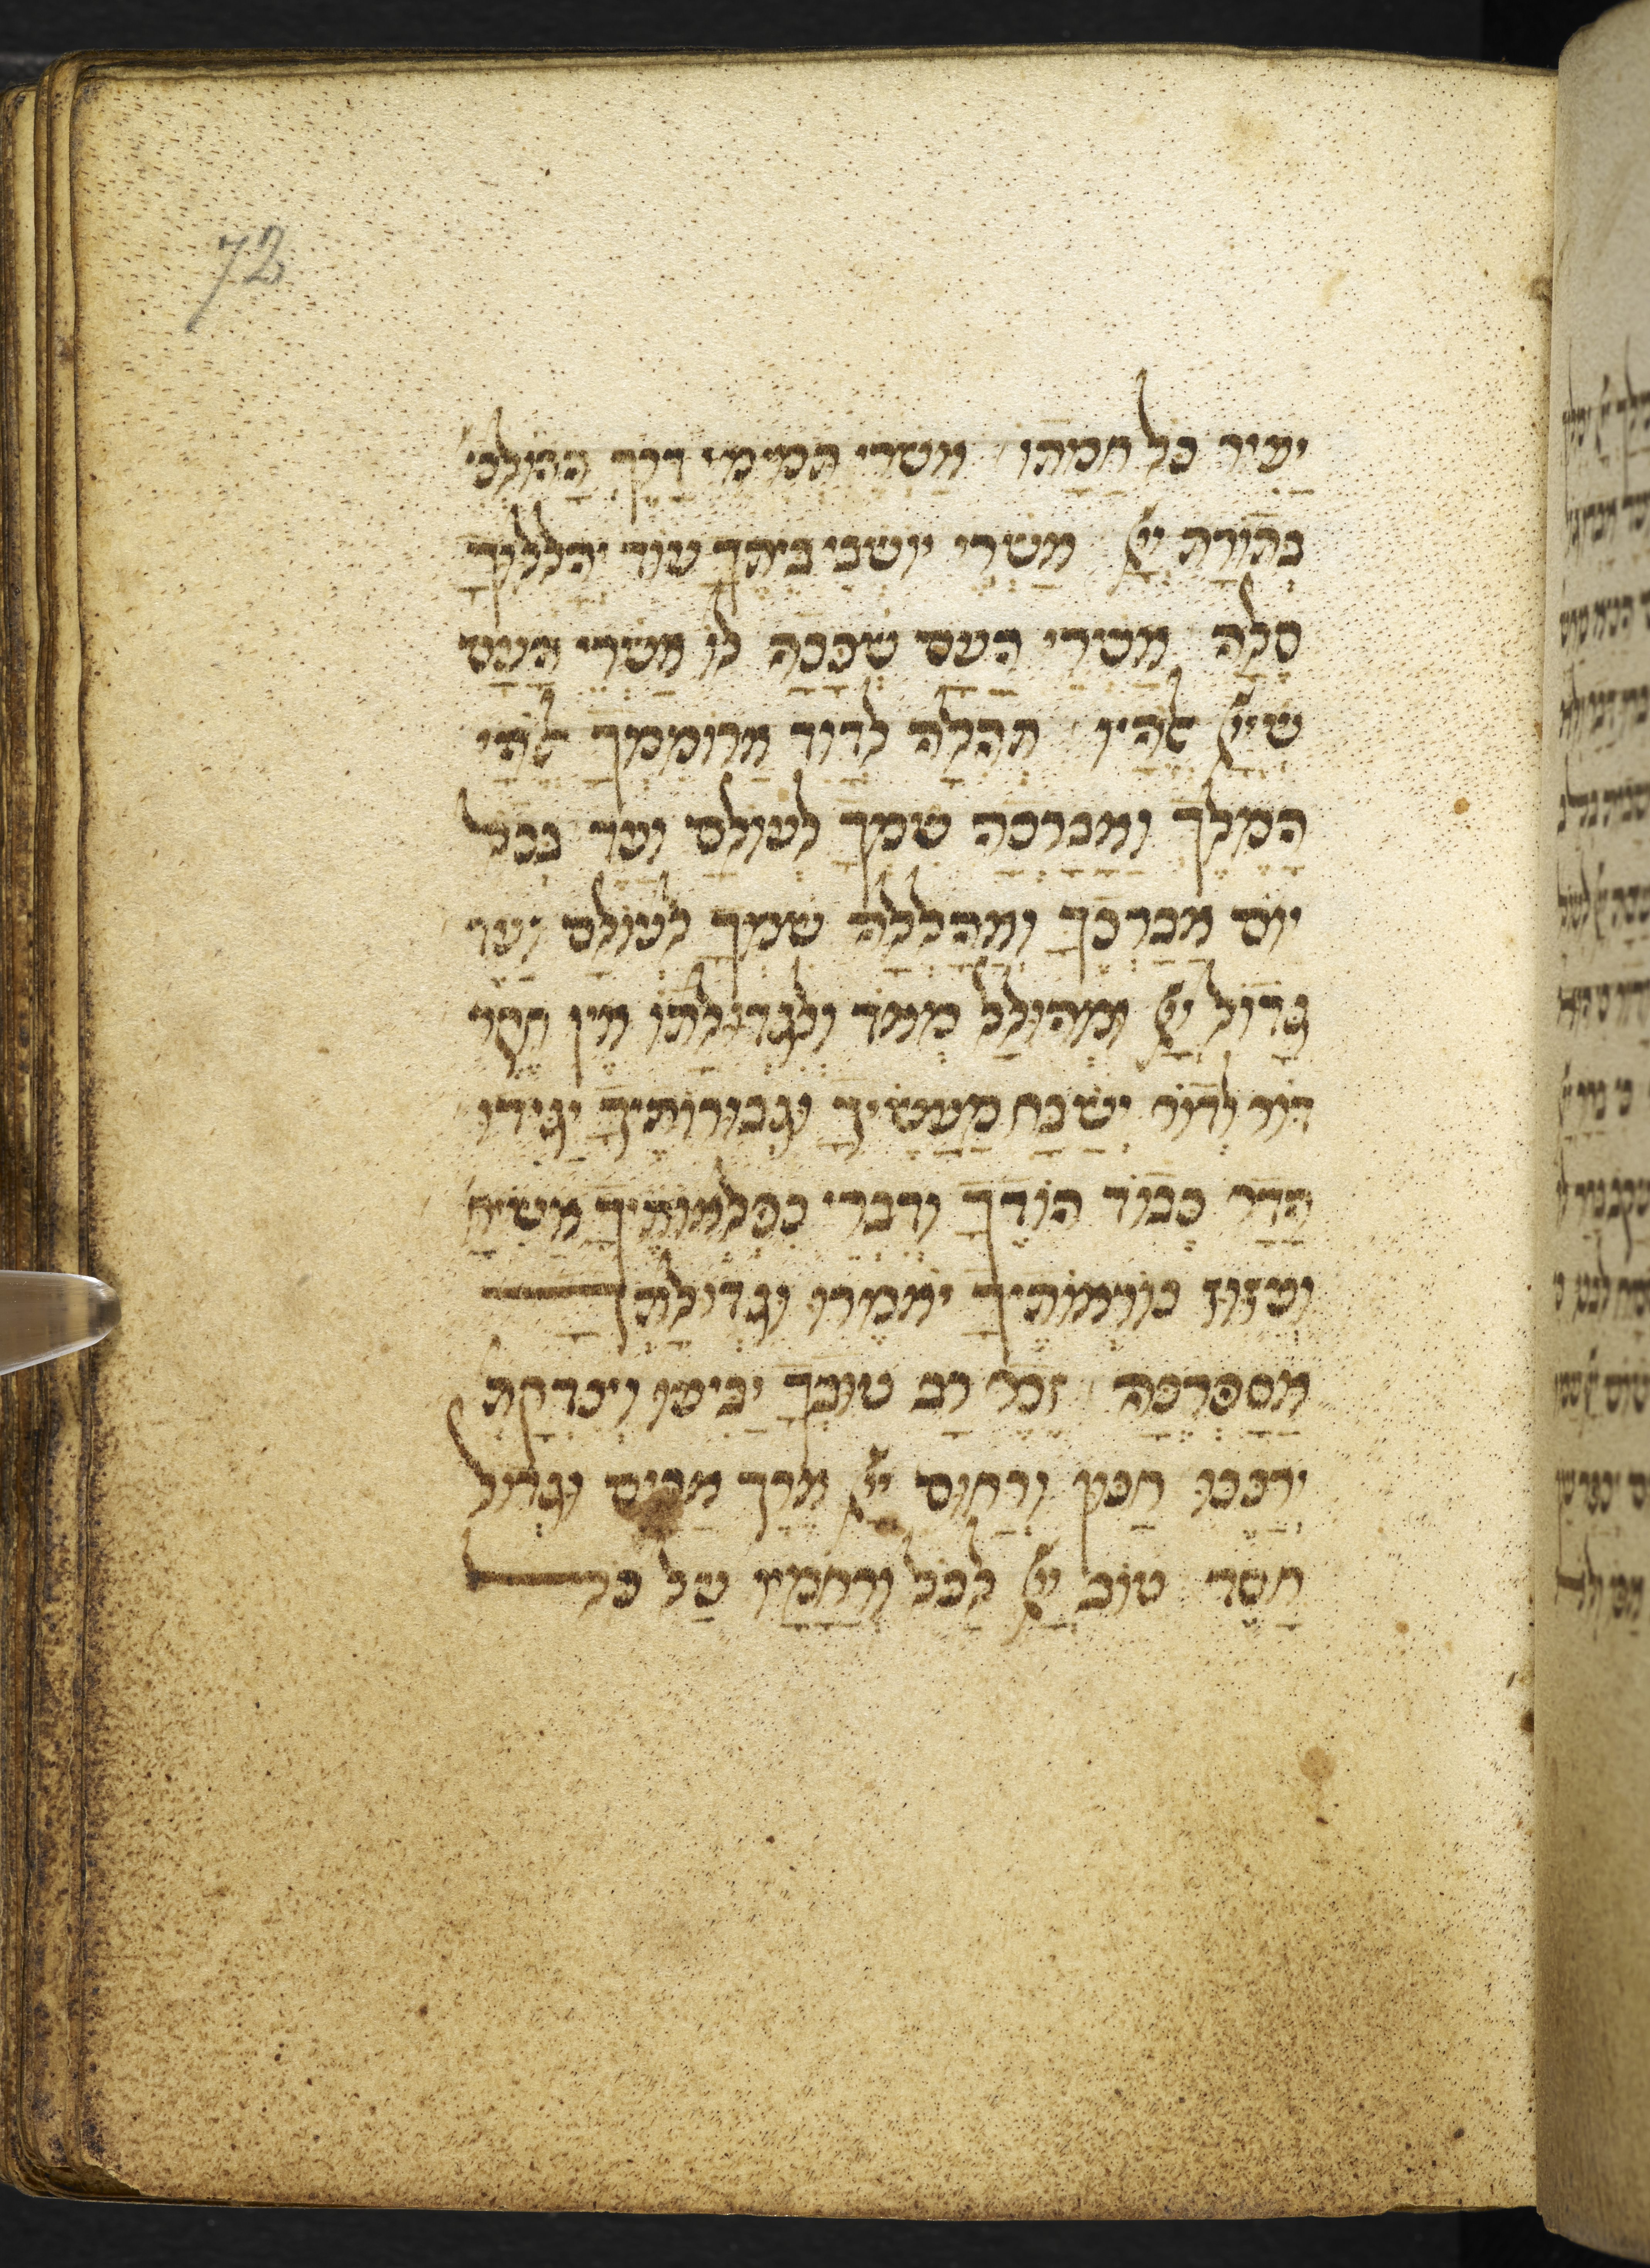 72
יעיר כל חמתו אשרי תמימי דרך ההולכי'
בתורת יי אשרי יושבי ביתך עוד יהללוך
סלה אשרי העם שככה לו אשרי העם
שיי אלהיו תהלה לדוד ארוממך אלהי
המלך ואברכה שמך לעולם ועד בכל
יום אברכך ואהללה שמך לעולם ועד
גדול יי ומהולל מאד ולגדולתו אין חקר
דור לדור ישבח מעשיך וגבורותיך יגידו
הדר כבוד הודך ודברי נפלאותיך אשיח
ועזוז נוראותיך יאמרו וגדולתך
אספרנה זכר רב טובך יביעו וצדקת
ירננו חנון ורחום יי ארך אפים וגדול
חסד טוב יי לכל ורחמיו על כל